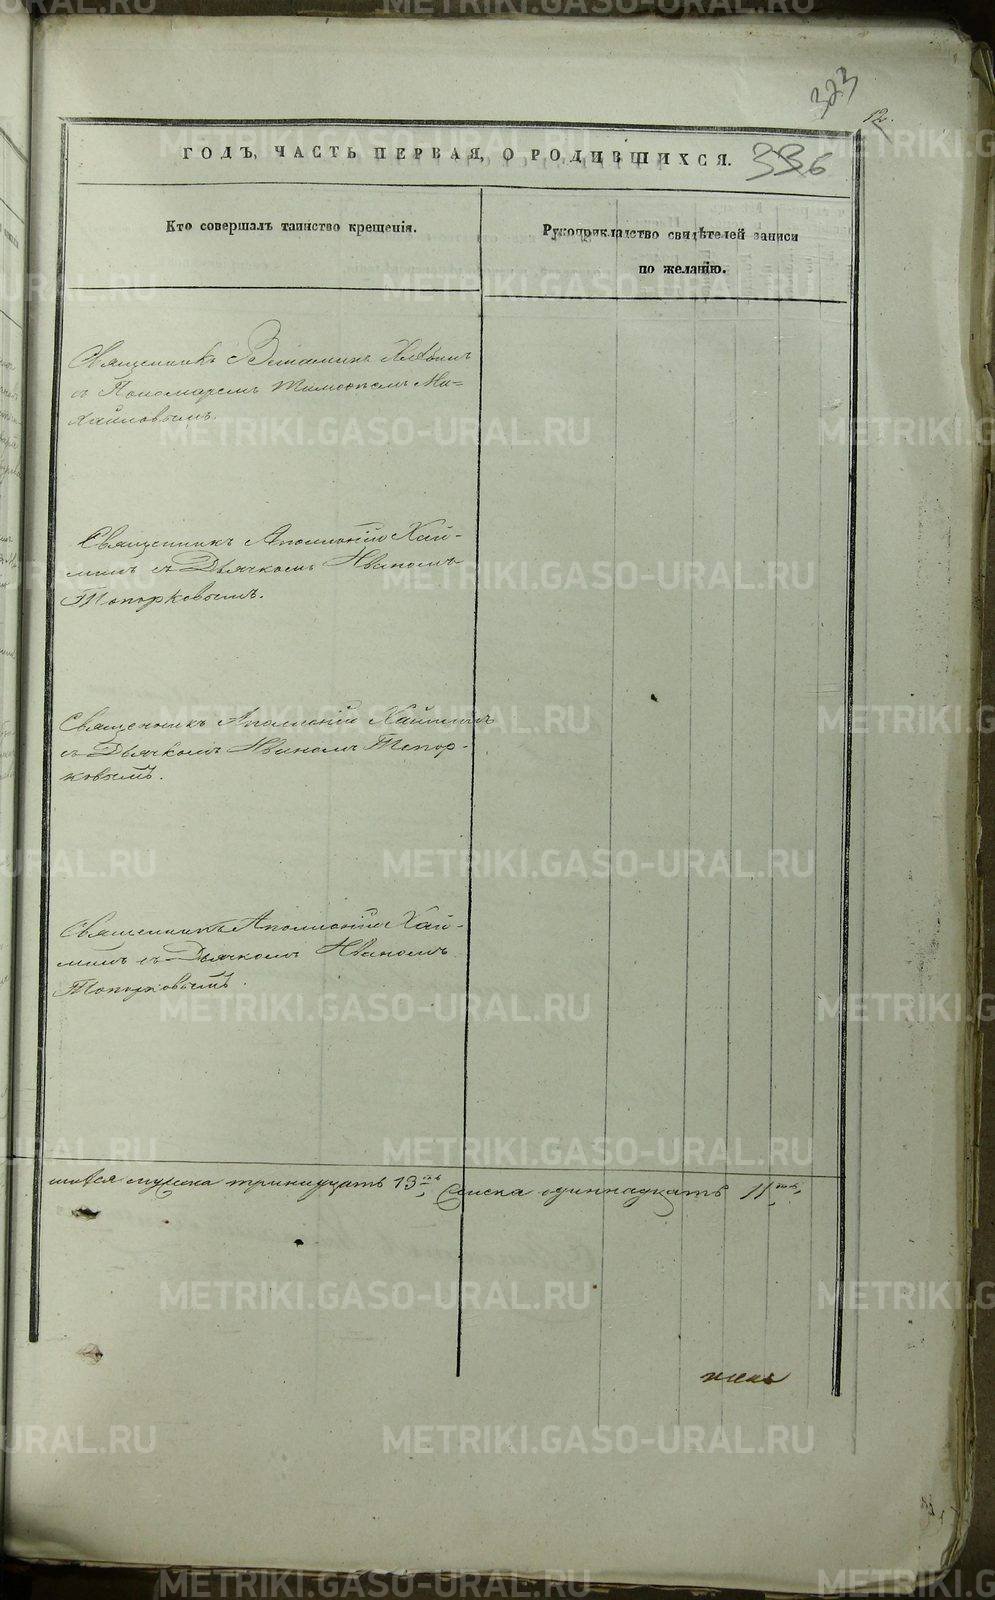 323
12.
ГОДЪ, ЧАСТЬ ПЕРВАЯ, О РОДИВШИХСЯ. 336
Кто совершалъ таинство крещенія.
Рукоприкладство свидѣтелей записи
по желанію.
Священникъ Веніаминъ
съ Пономаремъ Тимоѳеемъ Ми-
хайловымъ.
Священникъ Аполлоній Хай-
минъ съ Дьячкомъ Иваномъ
Топорковымъ.
Священникъ Аполлоній Хайминъ
съ Дьячкомъ Иваномъ Топор-
ковымъ.
Священникъ Аполлоній Хай-
минъ съ Дьячкомъ Иваномъ
Топорковымъ.
мужска тринадцать 13 женска одиннадцать 11
METRIKI.GASO-URAL.RU